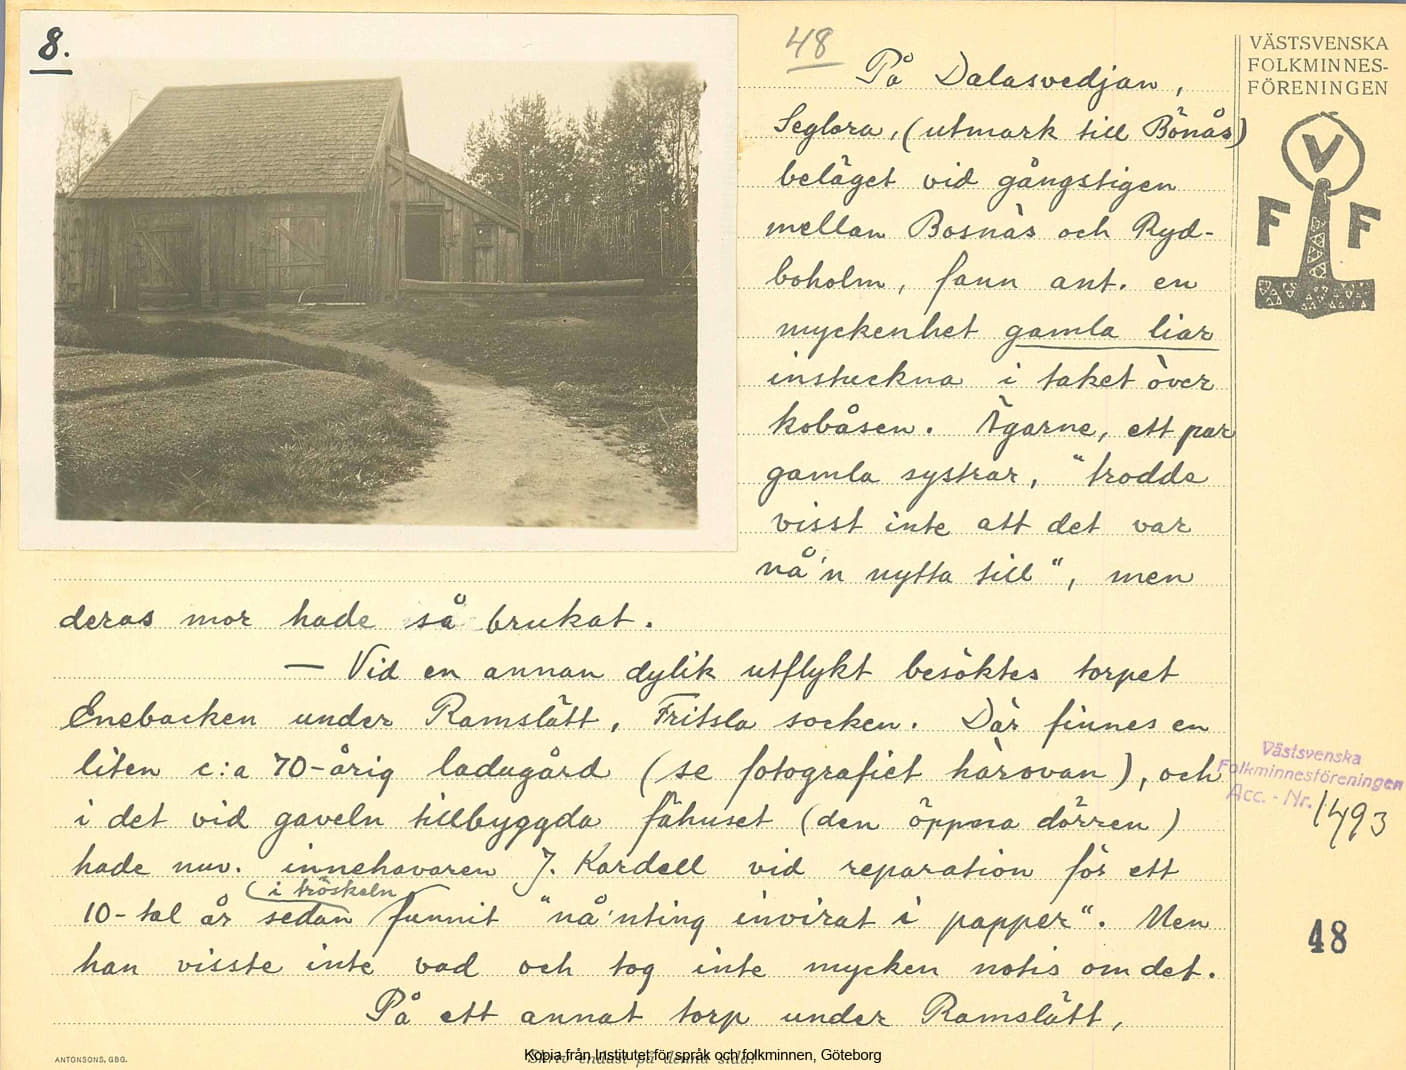 8.
48
VÄSTSVENSKA
FOLKMINNES-
FÖRENINGEN
V
F F
På Dalasvedjan,
Seglora, (utmark till Bönås)
beläget vid gångstigen
mellan Bosnäs och Ryd-
boholm, fann ant. en
myckenhet gamla liar
instuckna i taket över
kobåsen. Ägarne, ett par
gamla systrar, "trodde
visst inte att det var
nå'n nytta till", men
deras mor hade så brukat.
— Vid en annan dylik utflykt besöktes torpet
Enebacken under Ramslätt, Fritsla socken. Där finnes en
liten c:a 70-årig ladugård (se fotografiet härovan), och
i det vid gaveln tillbyggda fähuset (den öppna dörren)
hade nuv. innehavaren J. Kardell vid reparation för ett
i tröskeln
10-tal år sedan funnit "nå'nting invirat i papper". Men
han visste inte vad och tog inte mycken notis om det.
På ett annat torp under Ramslätt,
Västsvenska
Folkminnesföreningen
Acc. - Nr. 1493
48
ANTONSONS, GBG.
Skriv endast på denna sida!
Kopia från Institutet för språk och folkminnen, Göteborg